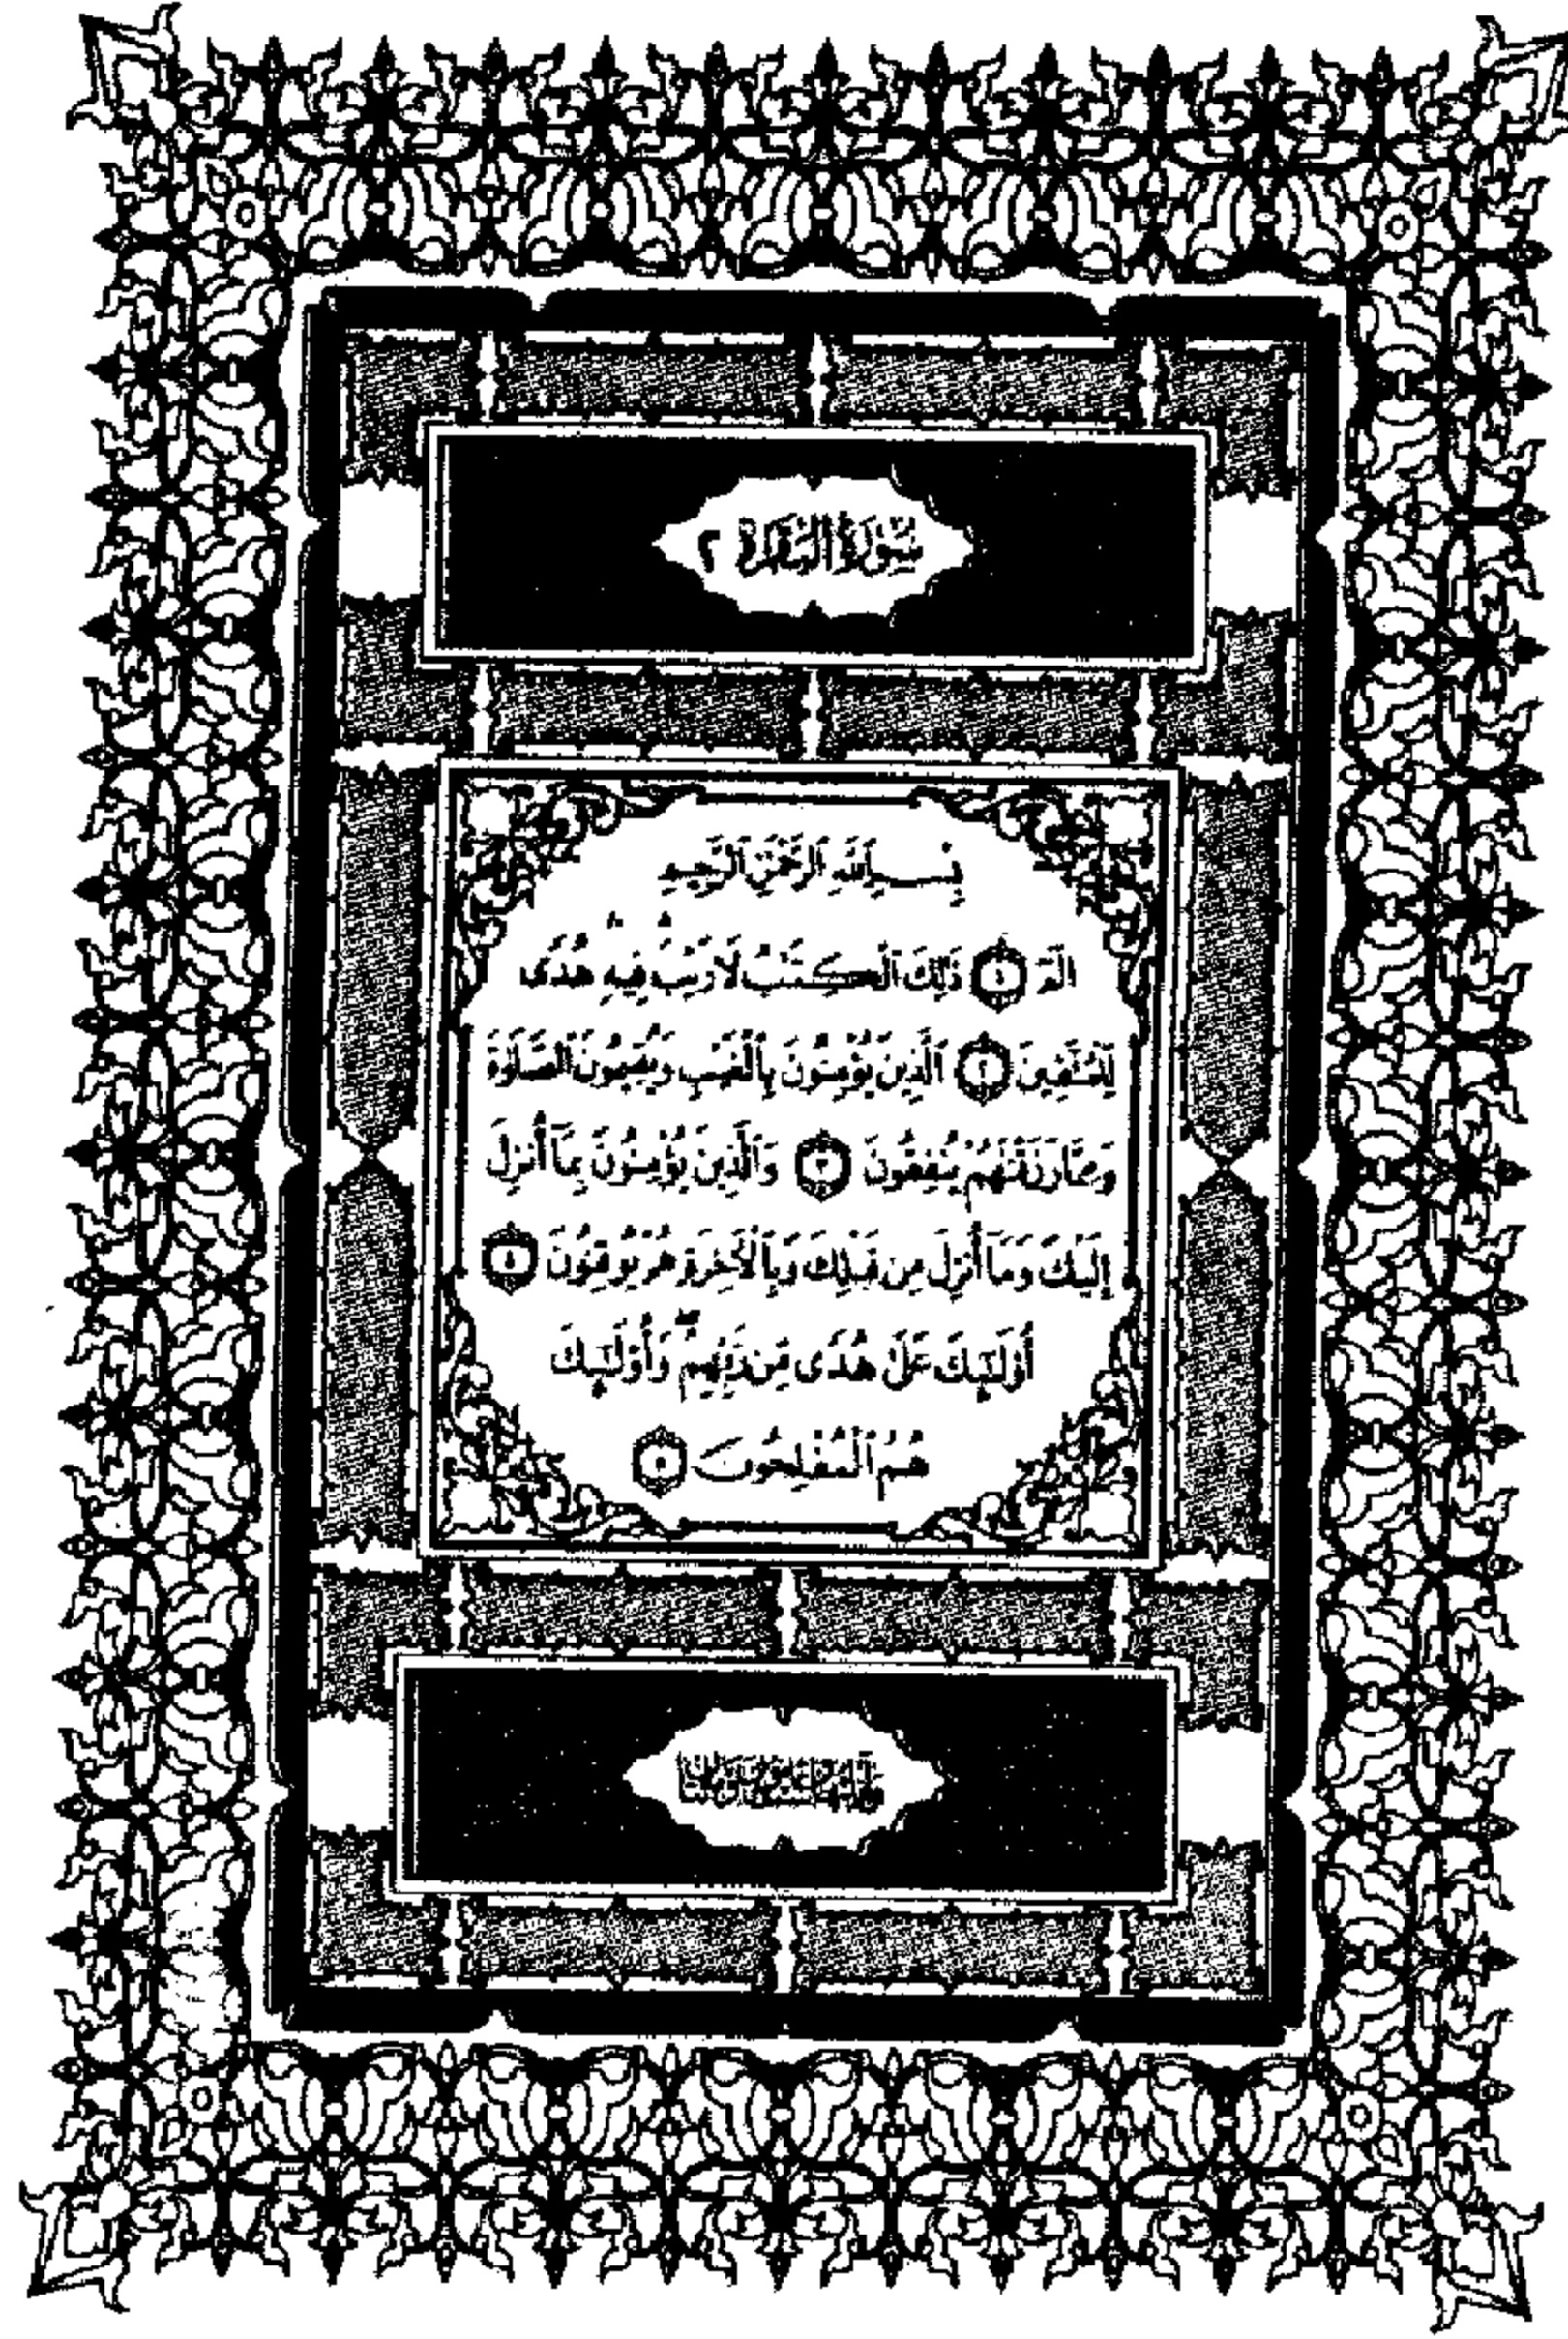 سُورَةُ البَقَرَةِ ٢
بِسْمِ اللَّهِ الرَّحْمَٰنِ الرَّحِيمِ
الٓمٓ ١ ذَٰلِكَ ٱلْكِتَٰبُ لَا رَيْبَ ۛ فِيهِ ۛ هُدًى
لِّلْمُتَّقِينَ ٢ ٱلَّذِينَ يُؤْمِنُونَ بِٱلْغَيْبِ وَيُقِيمُونَ ٱلصَّلَوٰةَ
وَمِمَّا رَزَقْنَٰهُمْ يُنفِقُونَ ٣ وَٱلَّذِينَ يُؤْمِنُونَ بِمَآ أُنزِلَ
إِلَيْكَ وَمَآ أُنزِلَ مِن قَبْلِكَ وَبِٱلْأَخِرَةِ هُمْ يُوقِنُونَ ٤
أُو۟لَٰٓئِكَ عَلَىٰ هُدًى مِّن رَّبِّهِمْ ۖ وَأُو۟لَٰٓئِكَ
هُمُ ٱلْمُفْلِحُونَ ٥